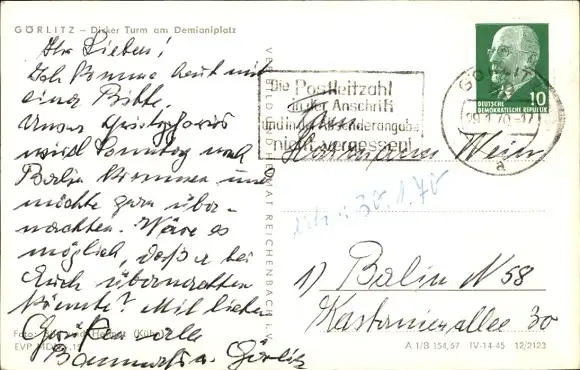 GÖRLITZ – Dicker Turm am Demianiplatz
Ihr Lieben!
Ich komme heut mit
einer Bitte.
Unser
wird Sonntag nach
Berlin kommen und
möchte gern über-
nachten. Wäre es
möglich, daß er bei
Euch übernachten
könnte? Mit lieben
Grüßen
Görlitz
VERLAG BILD UND HEIMAT REICHENBACH i. V.
Die Postleitzahl
in der Anschrift
und in der Absenderangabe
nicht vergessen!
GÖRLITZ
29.1.70-17
a
DEUTSCHE
DEMOKRATISCHE REPUBLIK
10
30.1.70
1) Berlin N 58
Kastanienallee 30
A 1/B 154/67 IV-14-45 12/2123